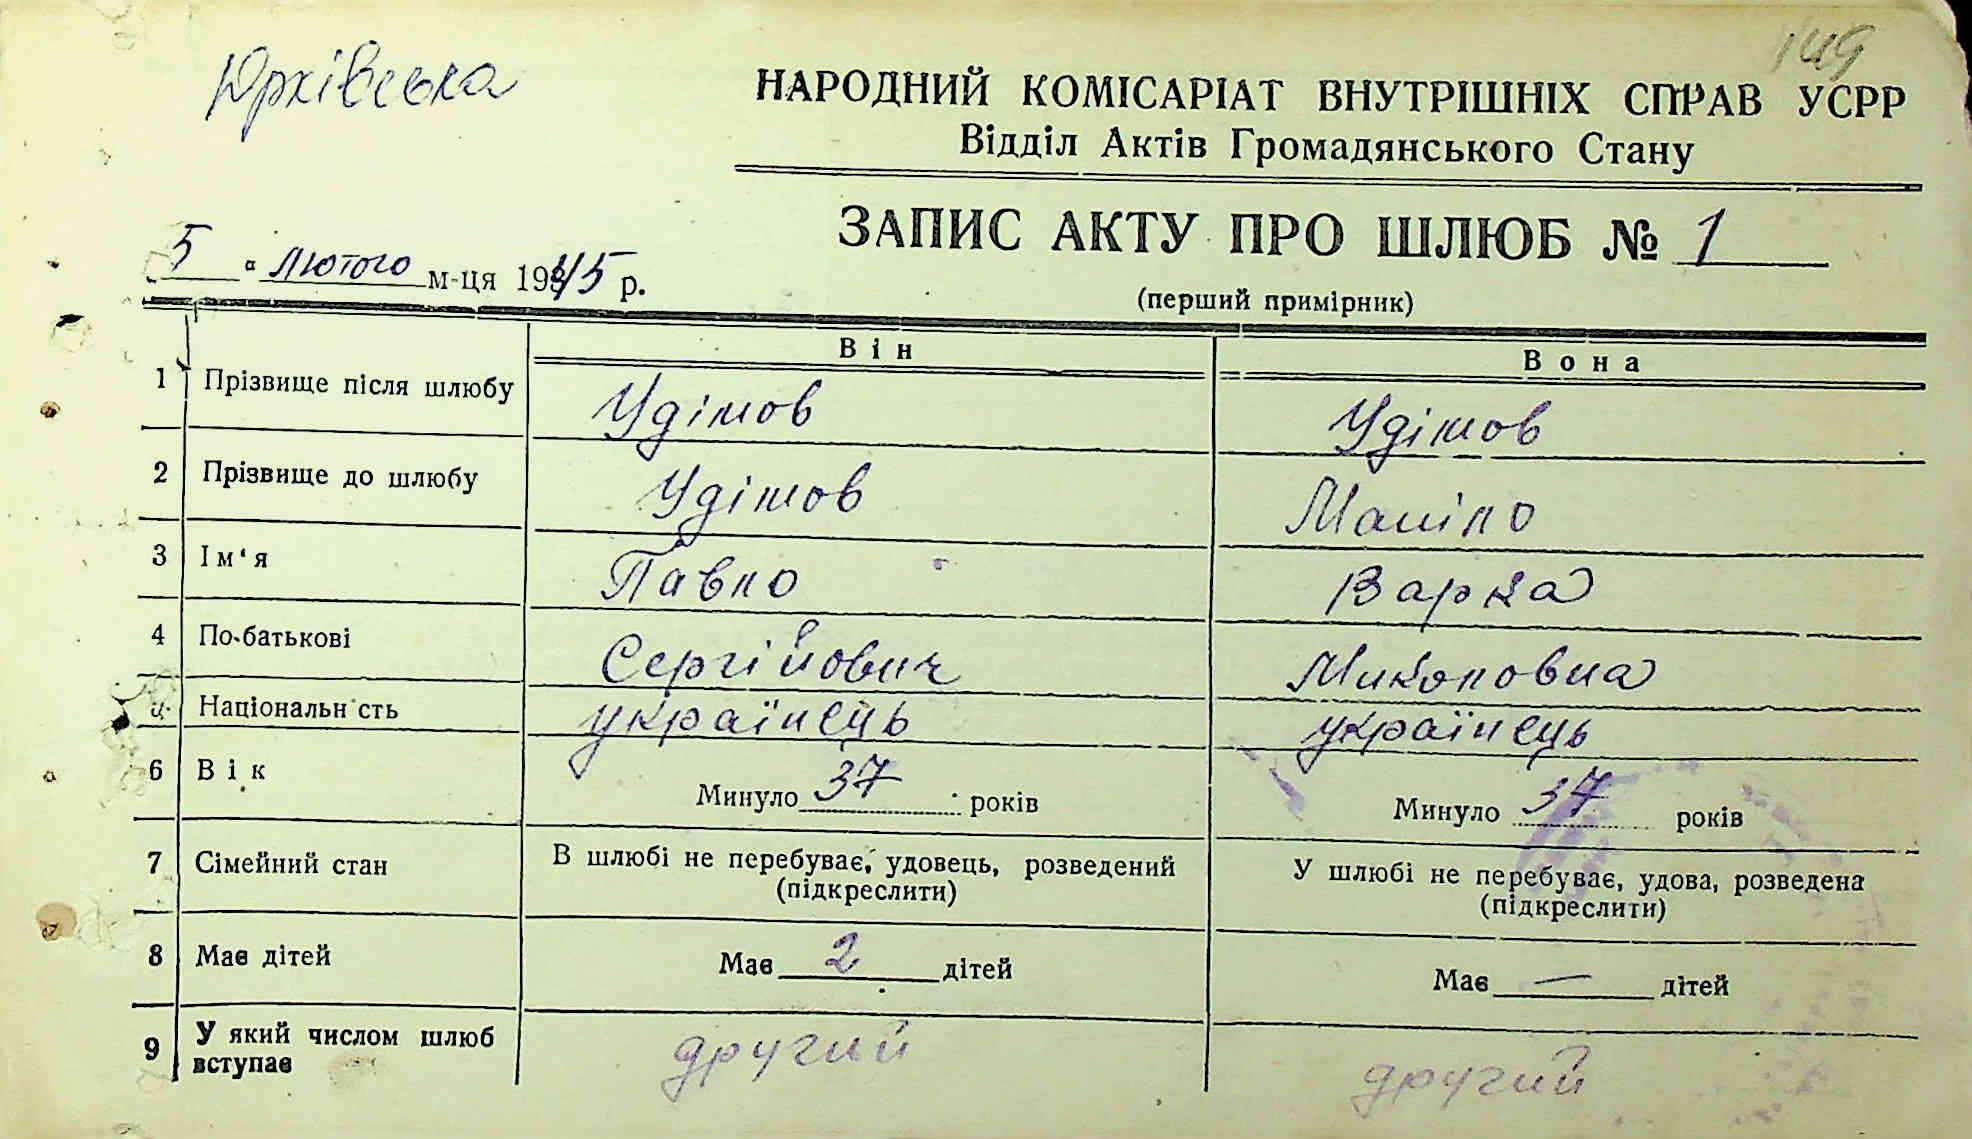 149
Юрківська
НАРОДНИЙ КОМІСАРІАТ ВНУТРІШНІХ СПРАВ УСРР
Відділ Актів Громадянського Стану
ЗАПИС АКТУ ПРО ШЛЮБ № 1
5 " лютого м-ця 1945 р.
(перший примірник)
Він Вона
1 Прізвище після шлюбу Удімов Удімов
2 Прізвище до шлюбу Удімов
3 Ім'я Павло Варка
4 По-батькові Сергійович Миколовна
Національність українець українець
6 Вік Минуло 37 років Минуло 37 років
7 Сімейний стан В шлюбі не перебуває, удовець, розведений (підкреслити) У шлюбі не перебуває, удова, розведена (підкреслити)
8 Має дітей Має 2 дітей Має — дітей
9 У який числом шлюб вступає другий другий